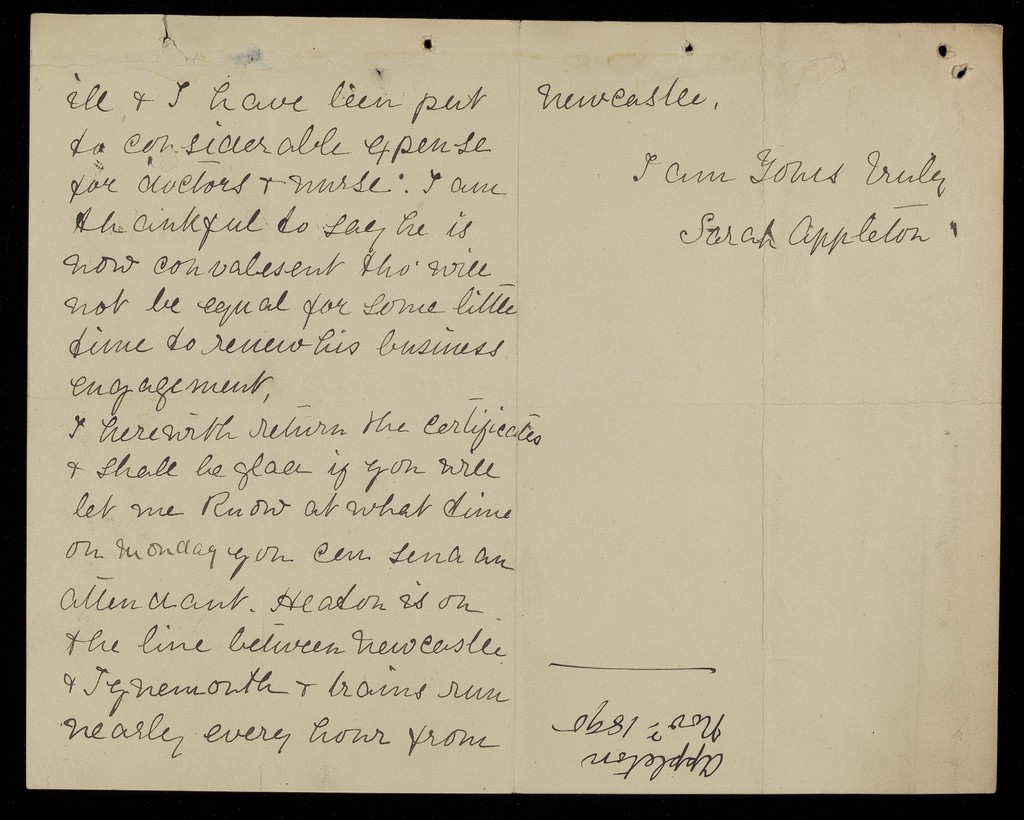 ill & I have been put
to considerable expense
for doctors & nurse. I am
thankful to say he is
now convalesent tho' will
not be equal for some little
time to renew his business
engagement,
I herewith return the certificates
& shall be glad if you will
let me know at what time
on Monday you can send an
attendant. Heaton is on
the line between Newcastle
& Tynemouth & trains run
nearly every hour from
Newcastle.
I am Yours Truly
Sarah Appleton
Appleton
Nov 7 1890